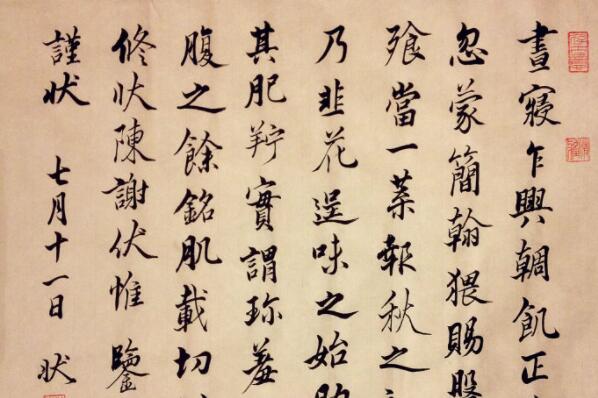 晝寢乍興輖飢正
忽蒙簡翰猥賜
飱當一葉報秋之
乃韭花逞味之始
其肥羜實謂珍羞
腹之餘銘肌載切
修狀陳謝伏惟鑒
謹狀 七月十一日 狀